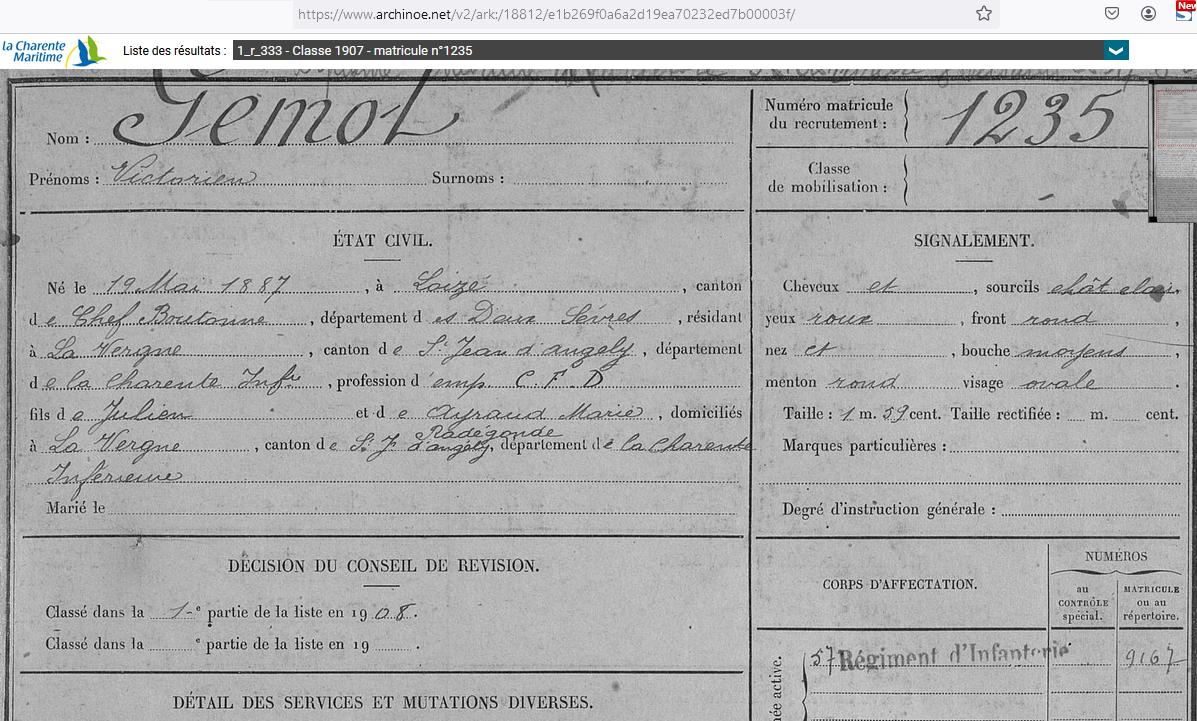 https://www.archinoe.net/v2/ark:/18812/e1b269f0a6a2d19ea70232ed7b00003f/
New
la Charente
Maritime
Liste des résultats :
1_r_333 - Classe 1907 - matricule n°1235
Nom : Gemot
Prénoms : Victorien Surnoms :
ÉTAT CIVIL.
Né le 19 Mai 1887, à Loizé, canton
de Chef Boutonne, département des Deux Sèvres, résidant
à La Vergne, canton de St Jean d'angely, département
de la Charente Infre, profession d'emp. C.F.D
fils de Julien et de Ayraud Marie, domiciliés
Radégonde
à La Vergne, canton de St J d'angély, département de la Charente
Inférieure
Marié le
DÉCISION DU CONSEIL DE REVISION.
Classé dans la 1e partie de la liste en 1908.
Classé dans la e partie de la liste en 19 .
DÉTAIL DES SERVICES ET MUTATIONS DIVERSES.
Numéro matricule
du recrutement : 1235
Classe
de mobilisation :
SIGNALEMENT.
Cheveux et, sourcils chât clair,
yeux roux, front rond,
nez et, bouche moyens,
menton rond visage ovale.
Taille : 1 m. 59 cent. Taille rectifiée : m. cent.
Marques particulières :
Degré d'instruction générale :
CORPS D'AFFECTATION.
NUMÉROS
au
CONTRÔLE
spécial.
MATRICULE
ou au
répertoire.
57 Régiment d'Infanterie
9167